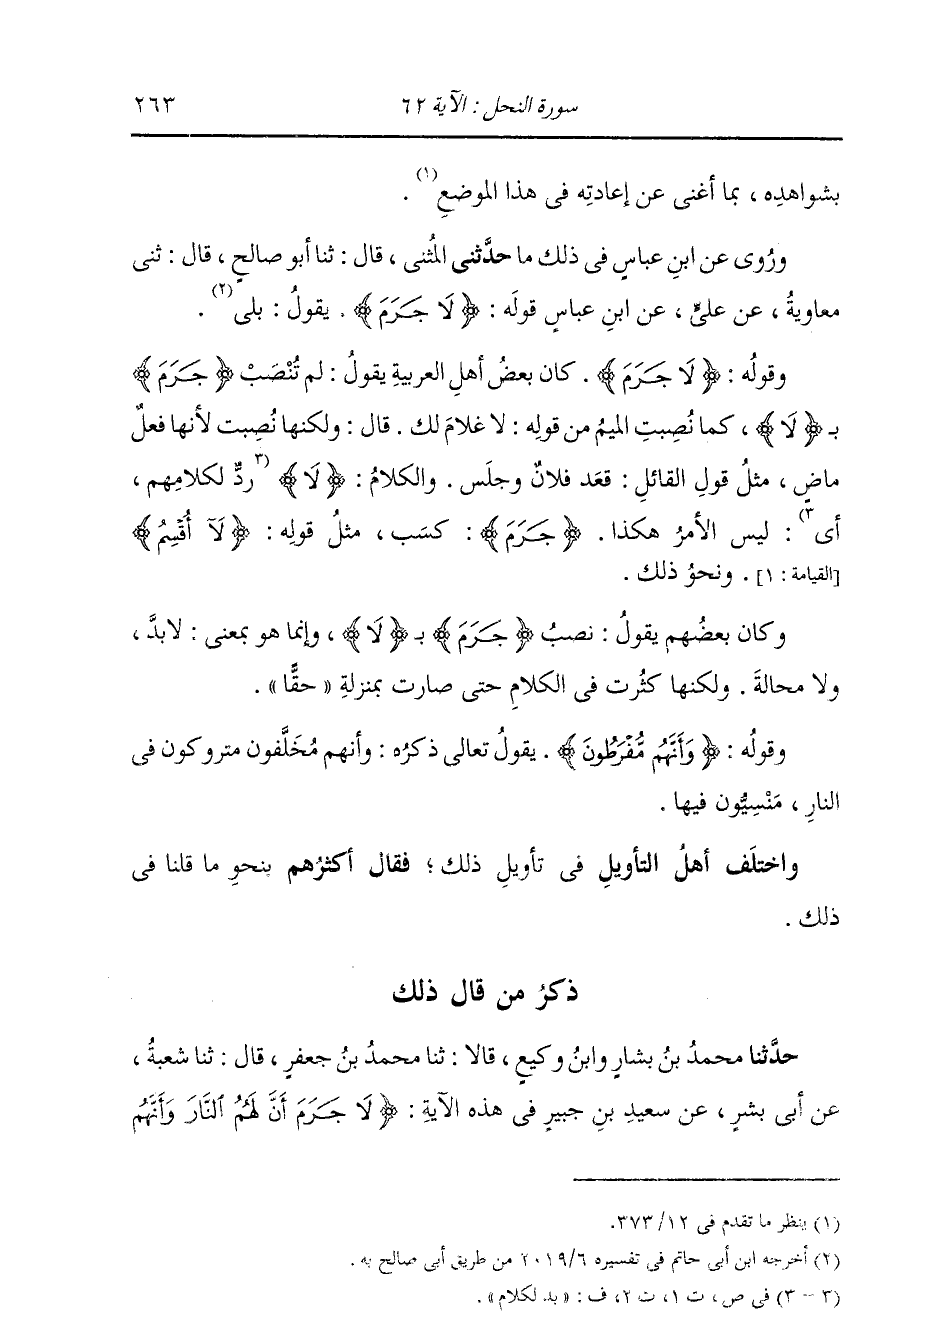 سورة النحل : الآية ٦٢ ٢٦٣
بشواهدِه ، بما أغنى عن إعادتِه فى هذا الموضعِ(١) .
ورُوى عن ابنِ عباسٍ فى ذلك ما حدَّثنى المُثنى ، قال : ثنا أبو صالحٍ ، قال : ثنى
معاويةُ ، عن علىٍّ ، عن ابنِ عباسٍ قولَه : ﴿ لَا جَرَمَ ﴾ . يقولُ : بلى(٢) .
وقولُه : ﴿ لَا جَرَمَ ﴾ . كان بعضُ أهلِ العربيةِ يقولُ : لم تُنْصَبْ ﴿ جَرَمَ ﴾
بـ ﴿ لَا ﴾ ، كما نُصِبتِ الميمُ من قولِه : لا غلامَ لك . قال : ولكنها نُصِبت لأنها فعلٌ
ماضٍ ، مثلُ قولِ القائلِ : قعَد فلانٌ وجلَس . والكلامُ : ﴿ لَا ﴾ (٣ ردٌّ لكلامِهم ،
أى ٣) : ليس الأمرُ هكذا . ﴿ جَرَمَ ﴾ : كسَب ، مثلُ قولِه : ﴿ لَآ أُقْسِمُ ﴾
[القيامة : ١] . ونحوُ ذلك .
وكان بعضُهم يقولُ : نصبُ ﴿ جَرَمَ ﴾ بـ ﴿ لَا ﴾ ، وإنما هو بمعنى : لابدَّ ،
ولا محالةَ . ولكنها كثُرت فى الكلامِ حتى صارت بمنزلةِ « حقًّا » .
وقولُه : ﴿ وَأَنَّهُم مُّفْرَطُونَ ﴾ . يقولُ تعالى ذكرُه : وأنهم مُخَلَّفون متروكون فى
النارِ ، مَنْسِيُّون فيها .
واختلَف أهلُ التأويلِ فى تأويلِ ذلك ؛ فقال أكثرُهم بنحوِ ما قلنا فى
ذلك .
ذكرُ من قال ذلك
حدَّثنا محمدُ بنُ بشارٍ وابنُ وكيعٍ ، قالا : ثنا محمدُ بنُ جعفرٍ ، قال : ثنا شعبةُ ،
عن أبى بشرٍ ، عن سعيدِ بنِ جبيرٍ فى هذه الآيةِ : ﴿ لَا جَرَمَ أَنَّ لَهُمُ النَّارَ وَأَنَّهُم
(١) ينظر ما تقدم فى ١٢/ ٣٧٣.
(٢) أخرجه ابن أبى حاتم فى تفسيره ٢٠١٩/٦ من طريق أبى صالح به .
(٣ - ٣) فى ص، ت ١، ت ٢، ف : « بد لكلام » .